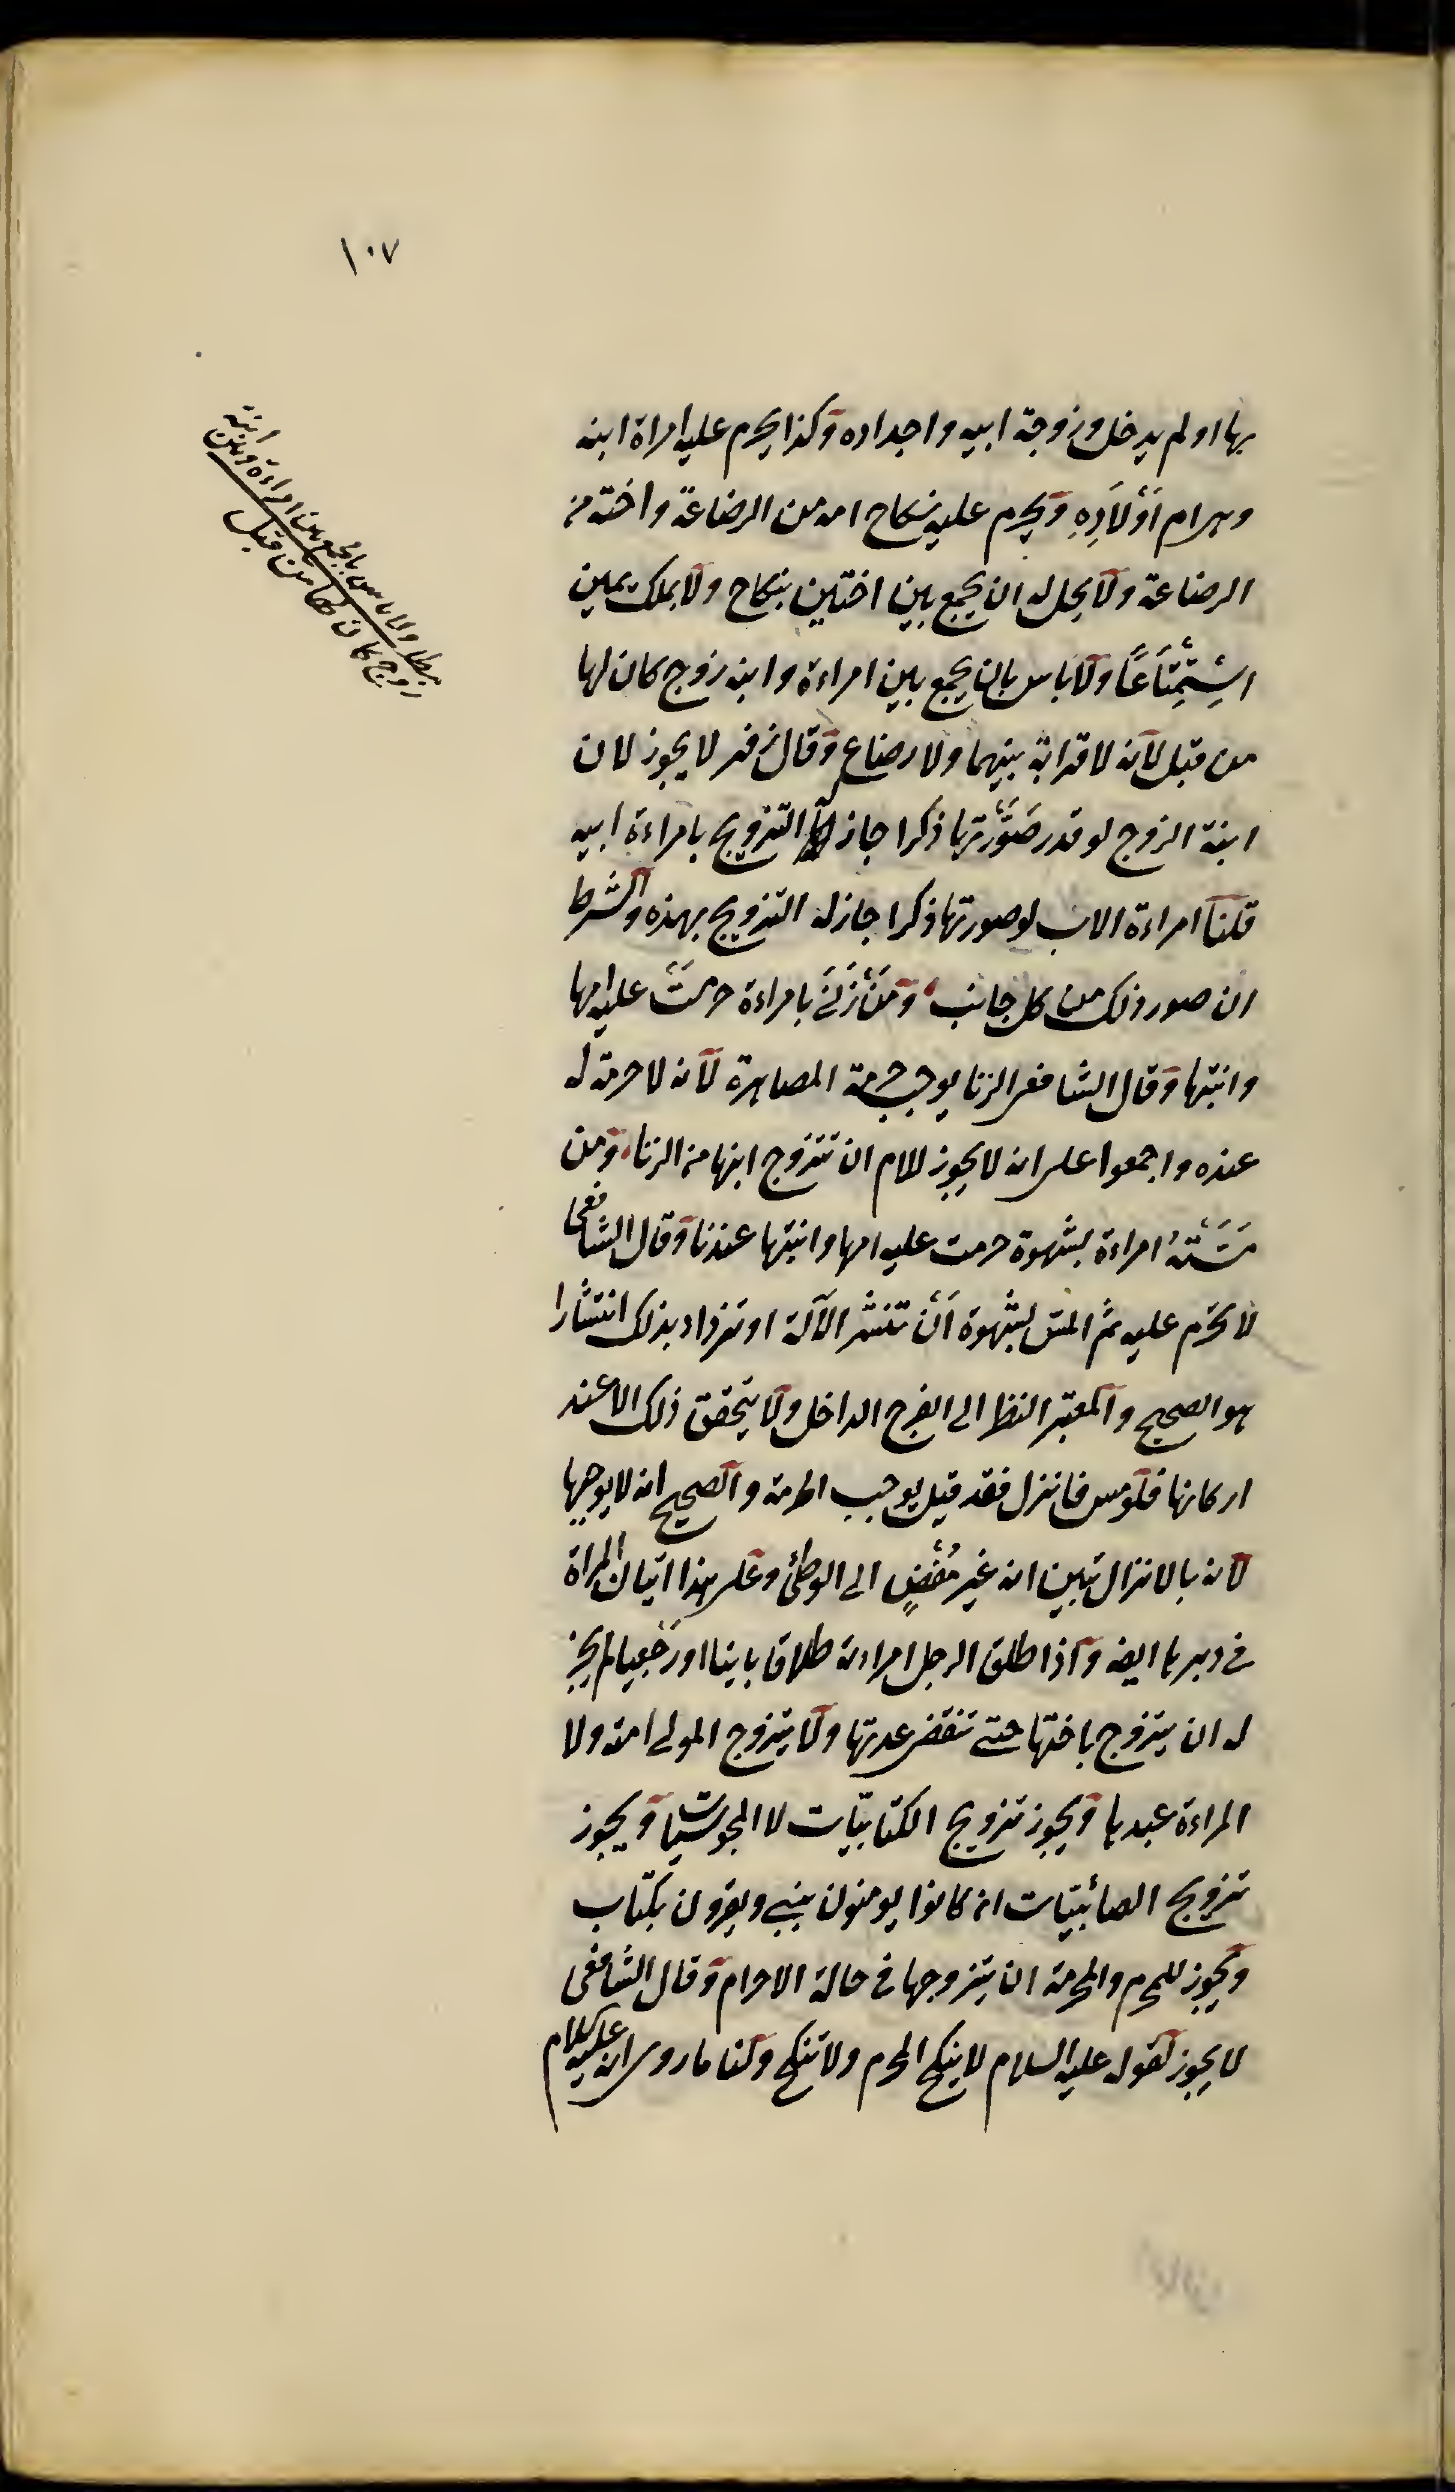 ١٠٧
بها او لم يدخل وزوجة ابيه واجداده وكذا يحرم عليه امراة ابنه
وبـرام اَوْلَادِهِ ويحرم عليه نكاح امه من الرضاعة واخته من
الرضاعة ولا يحل له ان يجمع بين اختين بنكاح ولا بملك يمين
اسْتِمْتَاعًا ولا باس بان يجمع بين امراءة وابنه زوج كان لها
من قبل لانه لا قرابة بينهما ولا رضاع وقال زفر لا يجوز لان
ابنة الزوج لو قدر صَوَّرْتَها ذكرا جاز له التزويج بامراءة ابيه
قلنا امراءة الاب لو صورتها ذكرا جاز له التزويج بهذه والشرط
ان صور ذلك من كل جانب ومَنْ زَنَىَ بامراءة حرمَتْ عليه امها
وابنتها وقال الشافعى الزنا يوجب حرمة المصاهرة لانه لا حرمة له
عنده واجمعوا على انه لا يجوز للام ان تتزوج ابنها من الزنا ومن
مَسَّتْهُ امراءة بشهوة حرمت عليه امها وابنتها عندنا وقال الشافعى
لا تحرم عليه ثم المس بشهوة اَنْ تنتشر الآلة او تزداد بذلك انتشارا
هو الصحيح والمعتبر النظر الى الفرج الداخل ولا يتحقق ذلك الا عند
اركانها فلو مس فانزل فقد قيل يوجب الحرمة والصحيح انه لا يوجبها
لانه بالانزال تبين انه غير مُفْضٍ الى الوطئ وعلى هذا اتيان المراة
فى دبرها ايضه واذا طلق الرجل امراءته طلاقا باينا او رَجْعِيا لم يجز
له ان يتزوج باختها حتى تنقضى عدتها ولا يتزوج المولى امته ولا
المراءة عبدها ويجوز تزويج الكتابيّات لا المجوسيات ويجوز
تزويج الصائبيّات ان كانوا يومنون بنبى ويقرون بكتاب
ويجوز للمحرم والمحرمة ان يتزوجها فى حالة الاحرام وقال الشافعى
لا يجوز لقوله عليه السلام لا ينكح المحرم ولا تنكح ولنا ما روى انه عليه السلام
ولا باس بان يجمع بين امراءة وبين ابنة
زوج كان لها من قبل